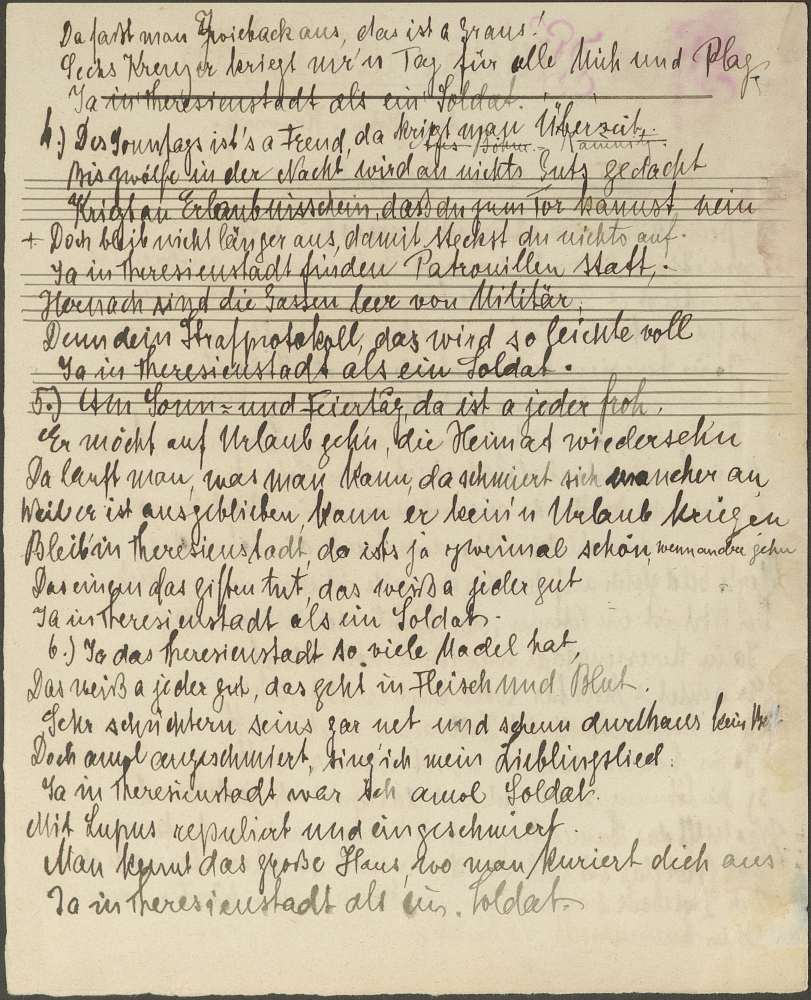 Da faßt man Zwieback aus, das ist a Graus!
Sechs Kreuzer kriegt mr'n Tag für alle Müh und Plag
Ja in Theresienstadt als ein Soldat.
4.) Des Sonntags ist's a Freud, da kriegt man Überzeit.
Bis zwölfe in der Nacht wird an nichts Guts gedacht
Kriegt an Erlaubnisschein, daß du zum Tor kannst nein
+ Doch bleib nicht länger aus, damit steckst du nichts auf.
Ja in Theresienstadt finden Patrouillen statt,
Hernach sind die Gassen leer von Militär,
Denn dein Strafprotokoll, das wird so leichte voll
Ja in Theresienstadt als ein Soldat.
5.) Am Sonn- und Feiertag, da ist a jeder froh.
Er möcht auf Urlaub geh'n, die Heimat wiederseh'n
Da lauft man, was man kann, da schmiert sich mancher an
Weil er ist ausgeblieben, kann er kein'n Urlaub kriegen
Bleib in Theresienstadt, da ists ja zweimal schön, wenn andre gehn
Das einem das giften tut, das weiß a jeder gut
Ja in Theresienstadt als ein Soldat.
6.) Ja das Theresienstadt so viele Madel hat,
Das weiß a jeder gut, das geht in Fleisch und Blut.
Sehr schüchtern seins gar net und schenn durchaus kein
Doch amol angeschmiert, sing ich mein Lieblingslied.
Ja in Theresienstadt war ich amol Soldat.
Mit Lupus repuliert und eingeschmiert.
Man kennt das große Haus, wo man kuriert dich aus
Ja in Theresienstadt als ein Soldat.